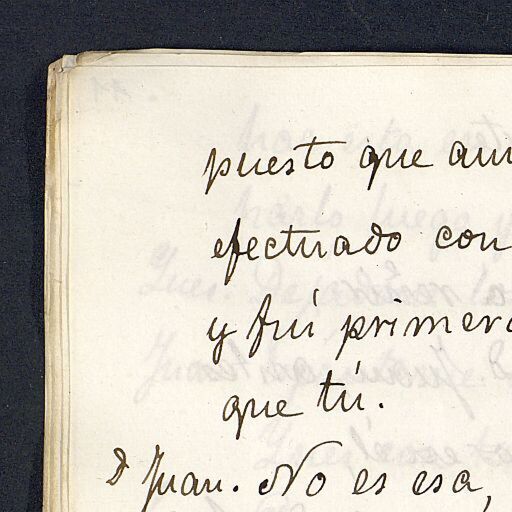 puesto que aun
efectuado con
y fuí primero
que tú.
D Juan. No es esa,